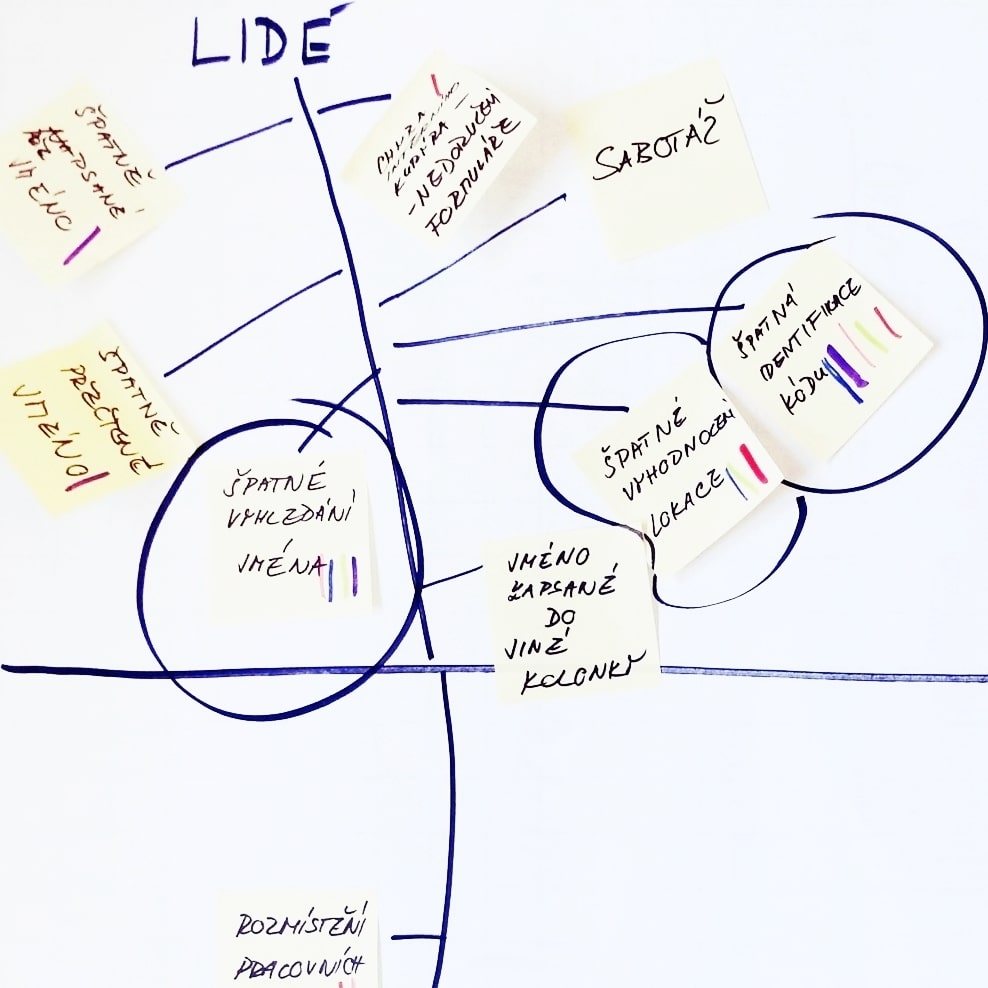 LIDÉ
ŠPATNĚ
NAPSANÉ
JMÉNO
CHYBA
KURÝRA -
- NEDORUČENÍ
FORMULÁŘE
SABOTÁŽ
ŠPATNÁ
IDENTIFIKACE
KÓDU
ŠPATNÉ
VYHODNOCENÍ
LOKACE
ŠPATNĚ
PŘEČTENÉ
JMÉNO
ŠPATNÉ
VYHLEDÁNÍ
JMÉNA
JMÉNO
ZAPSANÉ
DO
JINÉ
KOLONKY
ROZMÍSTĚNÍ
PRACOVNÍCH